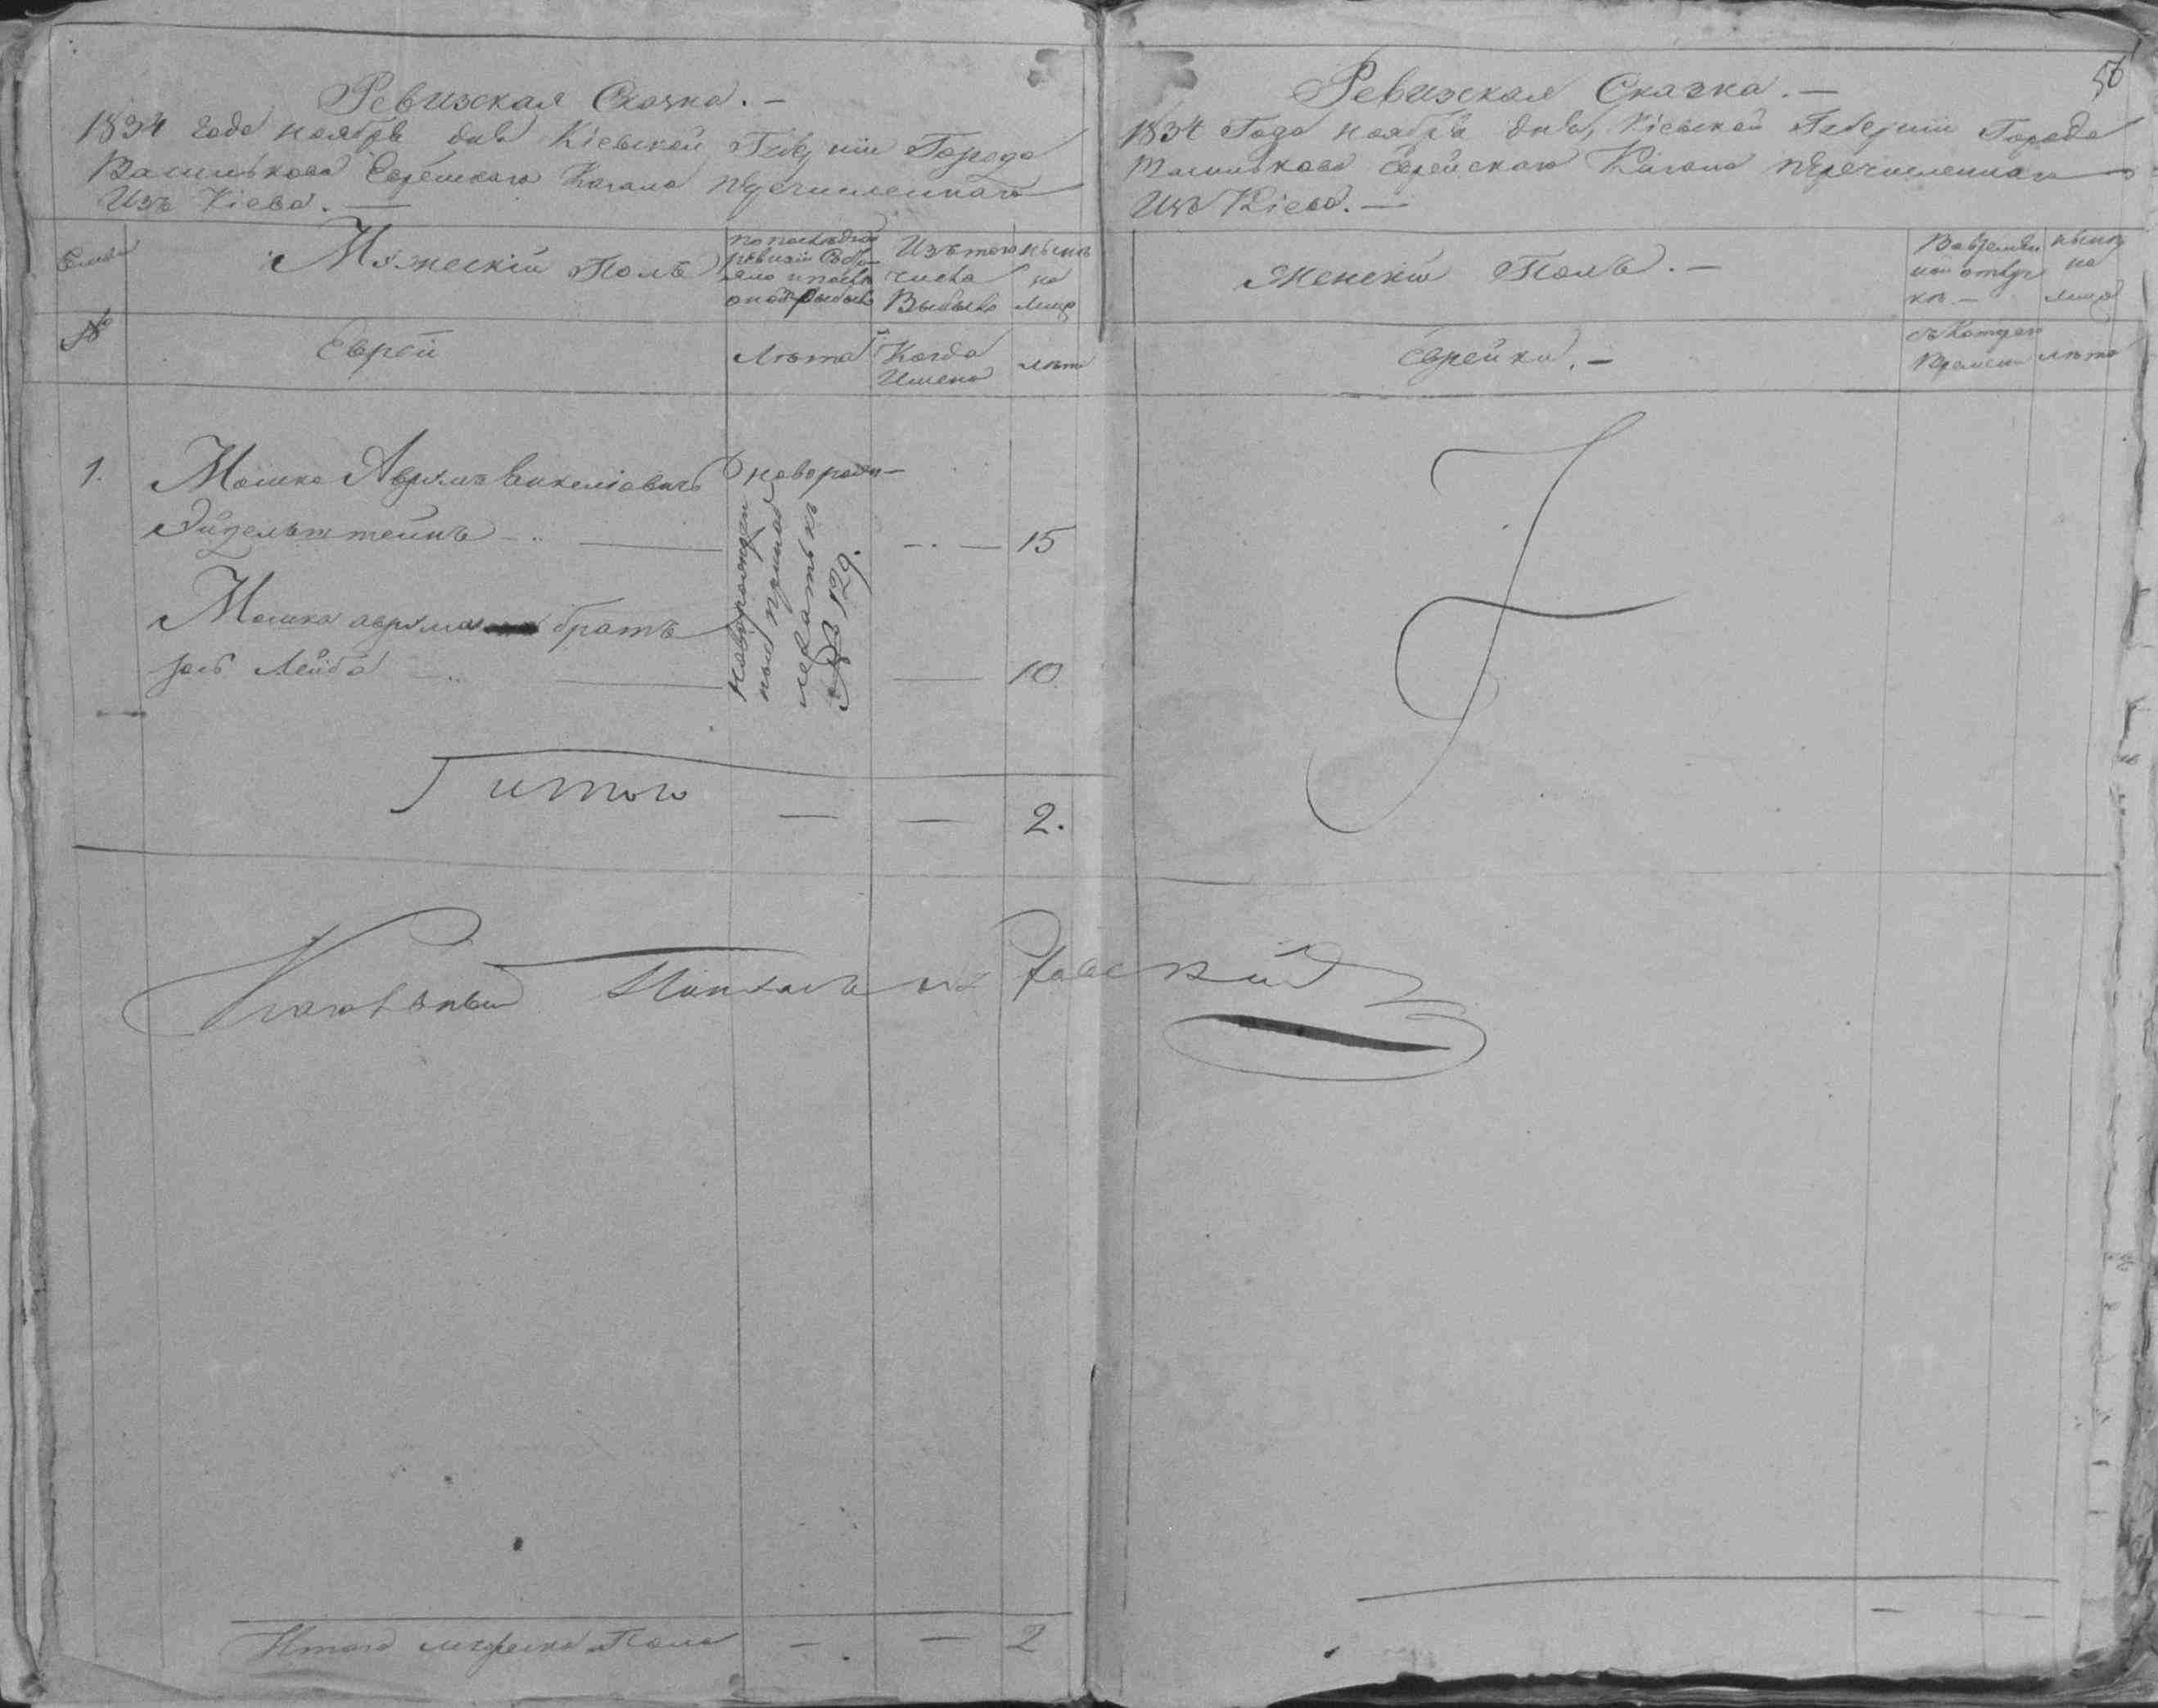 Ревизская Сказка. —
1834 года ноября дня Кіевской Губерніи Города
Василькова Еврейскаго Кагала перечисленнаго
Изъ Кіева. —
Семьи
Мужескій Полъ
по последней
ревизіи Состо-
яло и после
оной прибыло
Изъ того
числа
Выбыло
нынѣ
на
лицо
№
Еврей
Лѣта
Когда
Именно
лѣта
1. Мошко Аврумъ Янкеліовичъ новорожд —
Эйдельштейнъ — 15
новорожден
ные
лежатъ къ
№ 129.
Мошка аврума братъ
Лейба — 10
итого — — 2.
Итого мужеска Пола — — 2
56
Ревизская Сказка. —
1834 Года ноября дня, Кіевской Губерніи Города
Василькова Еврейскаго Кагала перечисленнаго
Изъ Кіева. —
Женскій Полъ. —
Во времян
ной отлуч
кѣ —
нынѣ
на
лицо
Еврейки. —
съ котораго
Времени
лѣта
— —